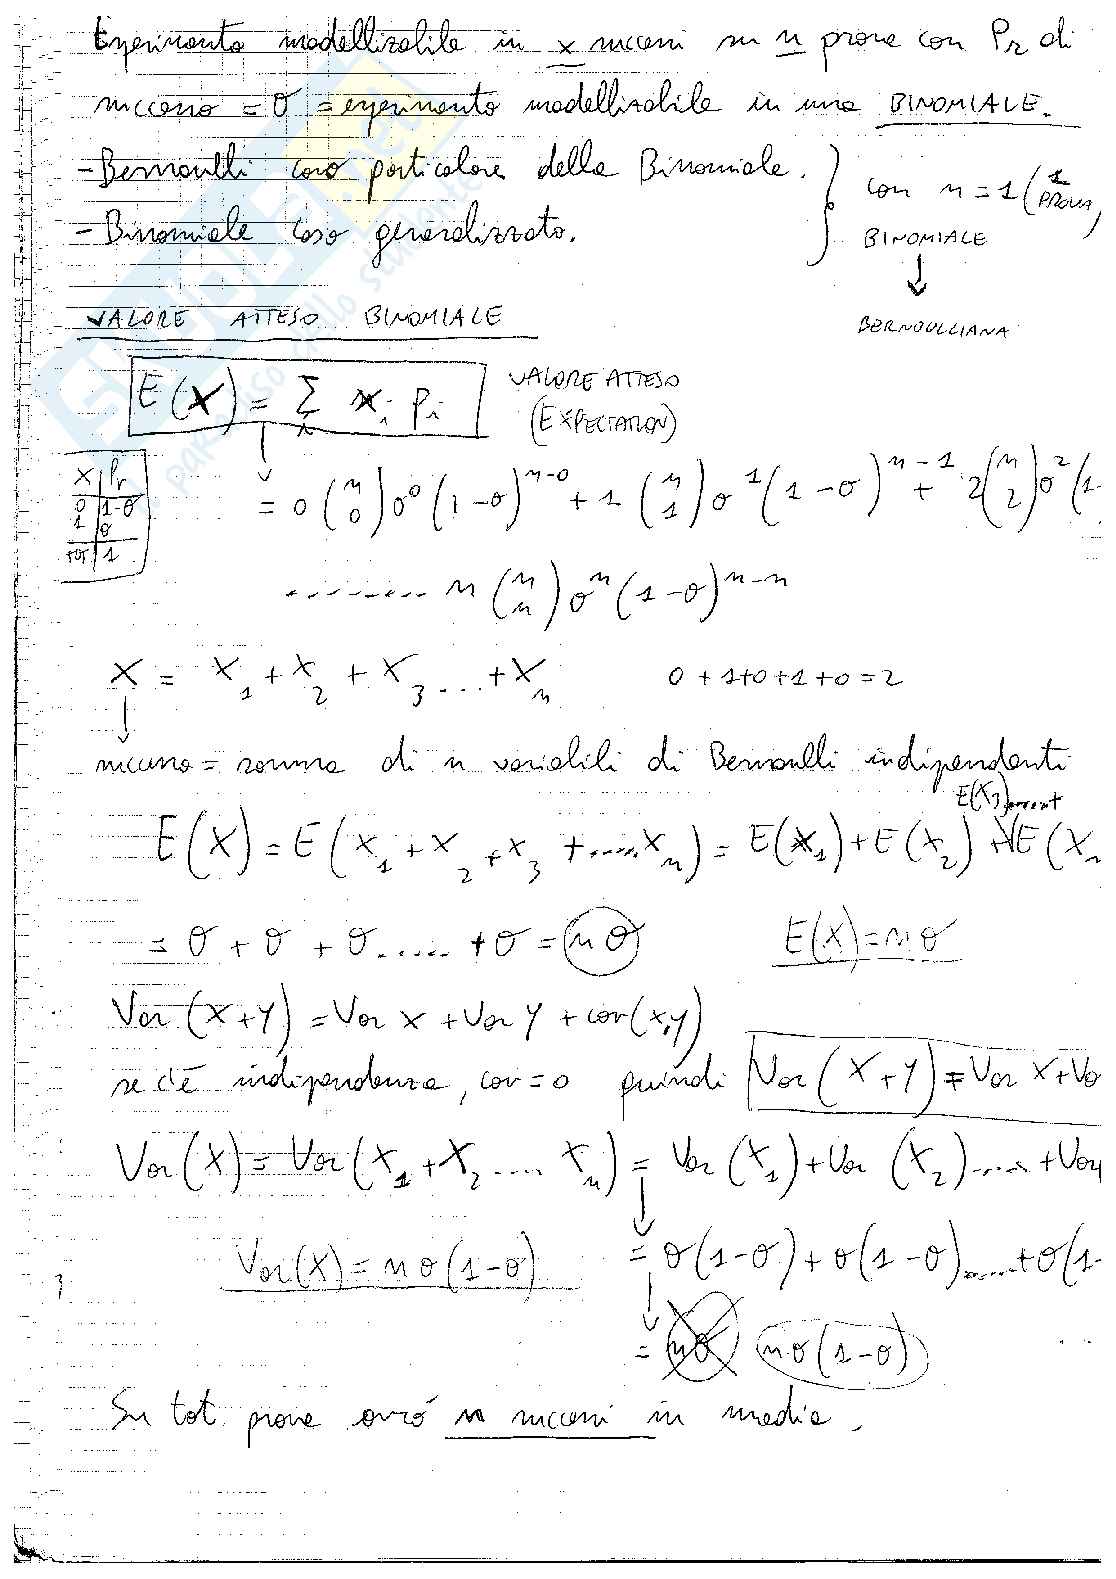 Esperimento modellizzabile in x successi su n prove con Pr di
successo = θ = esperimento modellizzabile in una BINOMIALE.
- Bernoulli caso particolare della Binomiale.
- Binomiale caso generalizzato.
con n = 1 (1 PROVA)
BINOMIALE
↓
BERNOULLIANA
VALORE ATTESO BINOMIALE
E(X) = Σ xᵢ pᵢ
i
VALORE ATTESO
(EXPECTATION)
X | Pr
0 | 1-θ
1 | θ
tot | 1
= 0 (n 0) θ⁰ (1-θ)ⁿ⁻⁰ + 1 (n 1) θ¹ (1-θ)ⁿ⁻¹ + 2 (n 2) θ² (1-
......... n (n n) θⁿ (1-θ)ⁿ⁻ⁿ
X = X₁ + X₂ + X₃ ... + Xₙ
0 + 1 + 0 + 1 + 0 = 2
successo = somma di n variabili di Bernoulli indipendenti
E(X) = E(X₁ + X₂ + X₃ + ..... Xₙ) = E(X₁) + E(X₂) + E(X₃) + E(Xₙ
= θ + θ + θ ...... + θ = nθ
E(X) = nθ
Var (X+Y) = Var X + Var Y + cov(x,y)
se c'è indipendenza, cov = 0 quindi Var (X+Y) = Var X + Va
Var(X) = Var(X₁ + X₂ .... Xₙ) = Var (X₁) + Var (X₂) ..... + Var
= θ(1-θ) + θ(1-θ) ..... + θ(1-
Var(X) = nθ(1-θ)
= nθ nθ(1-θ)
Su tot prove avrò n successi in media.